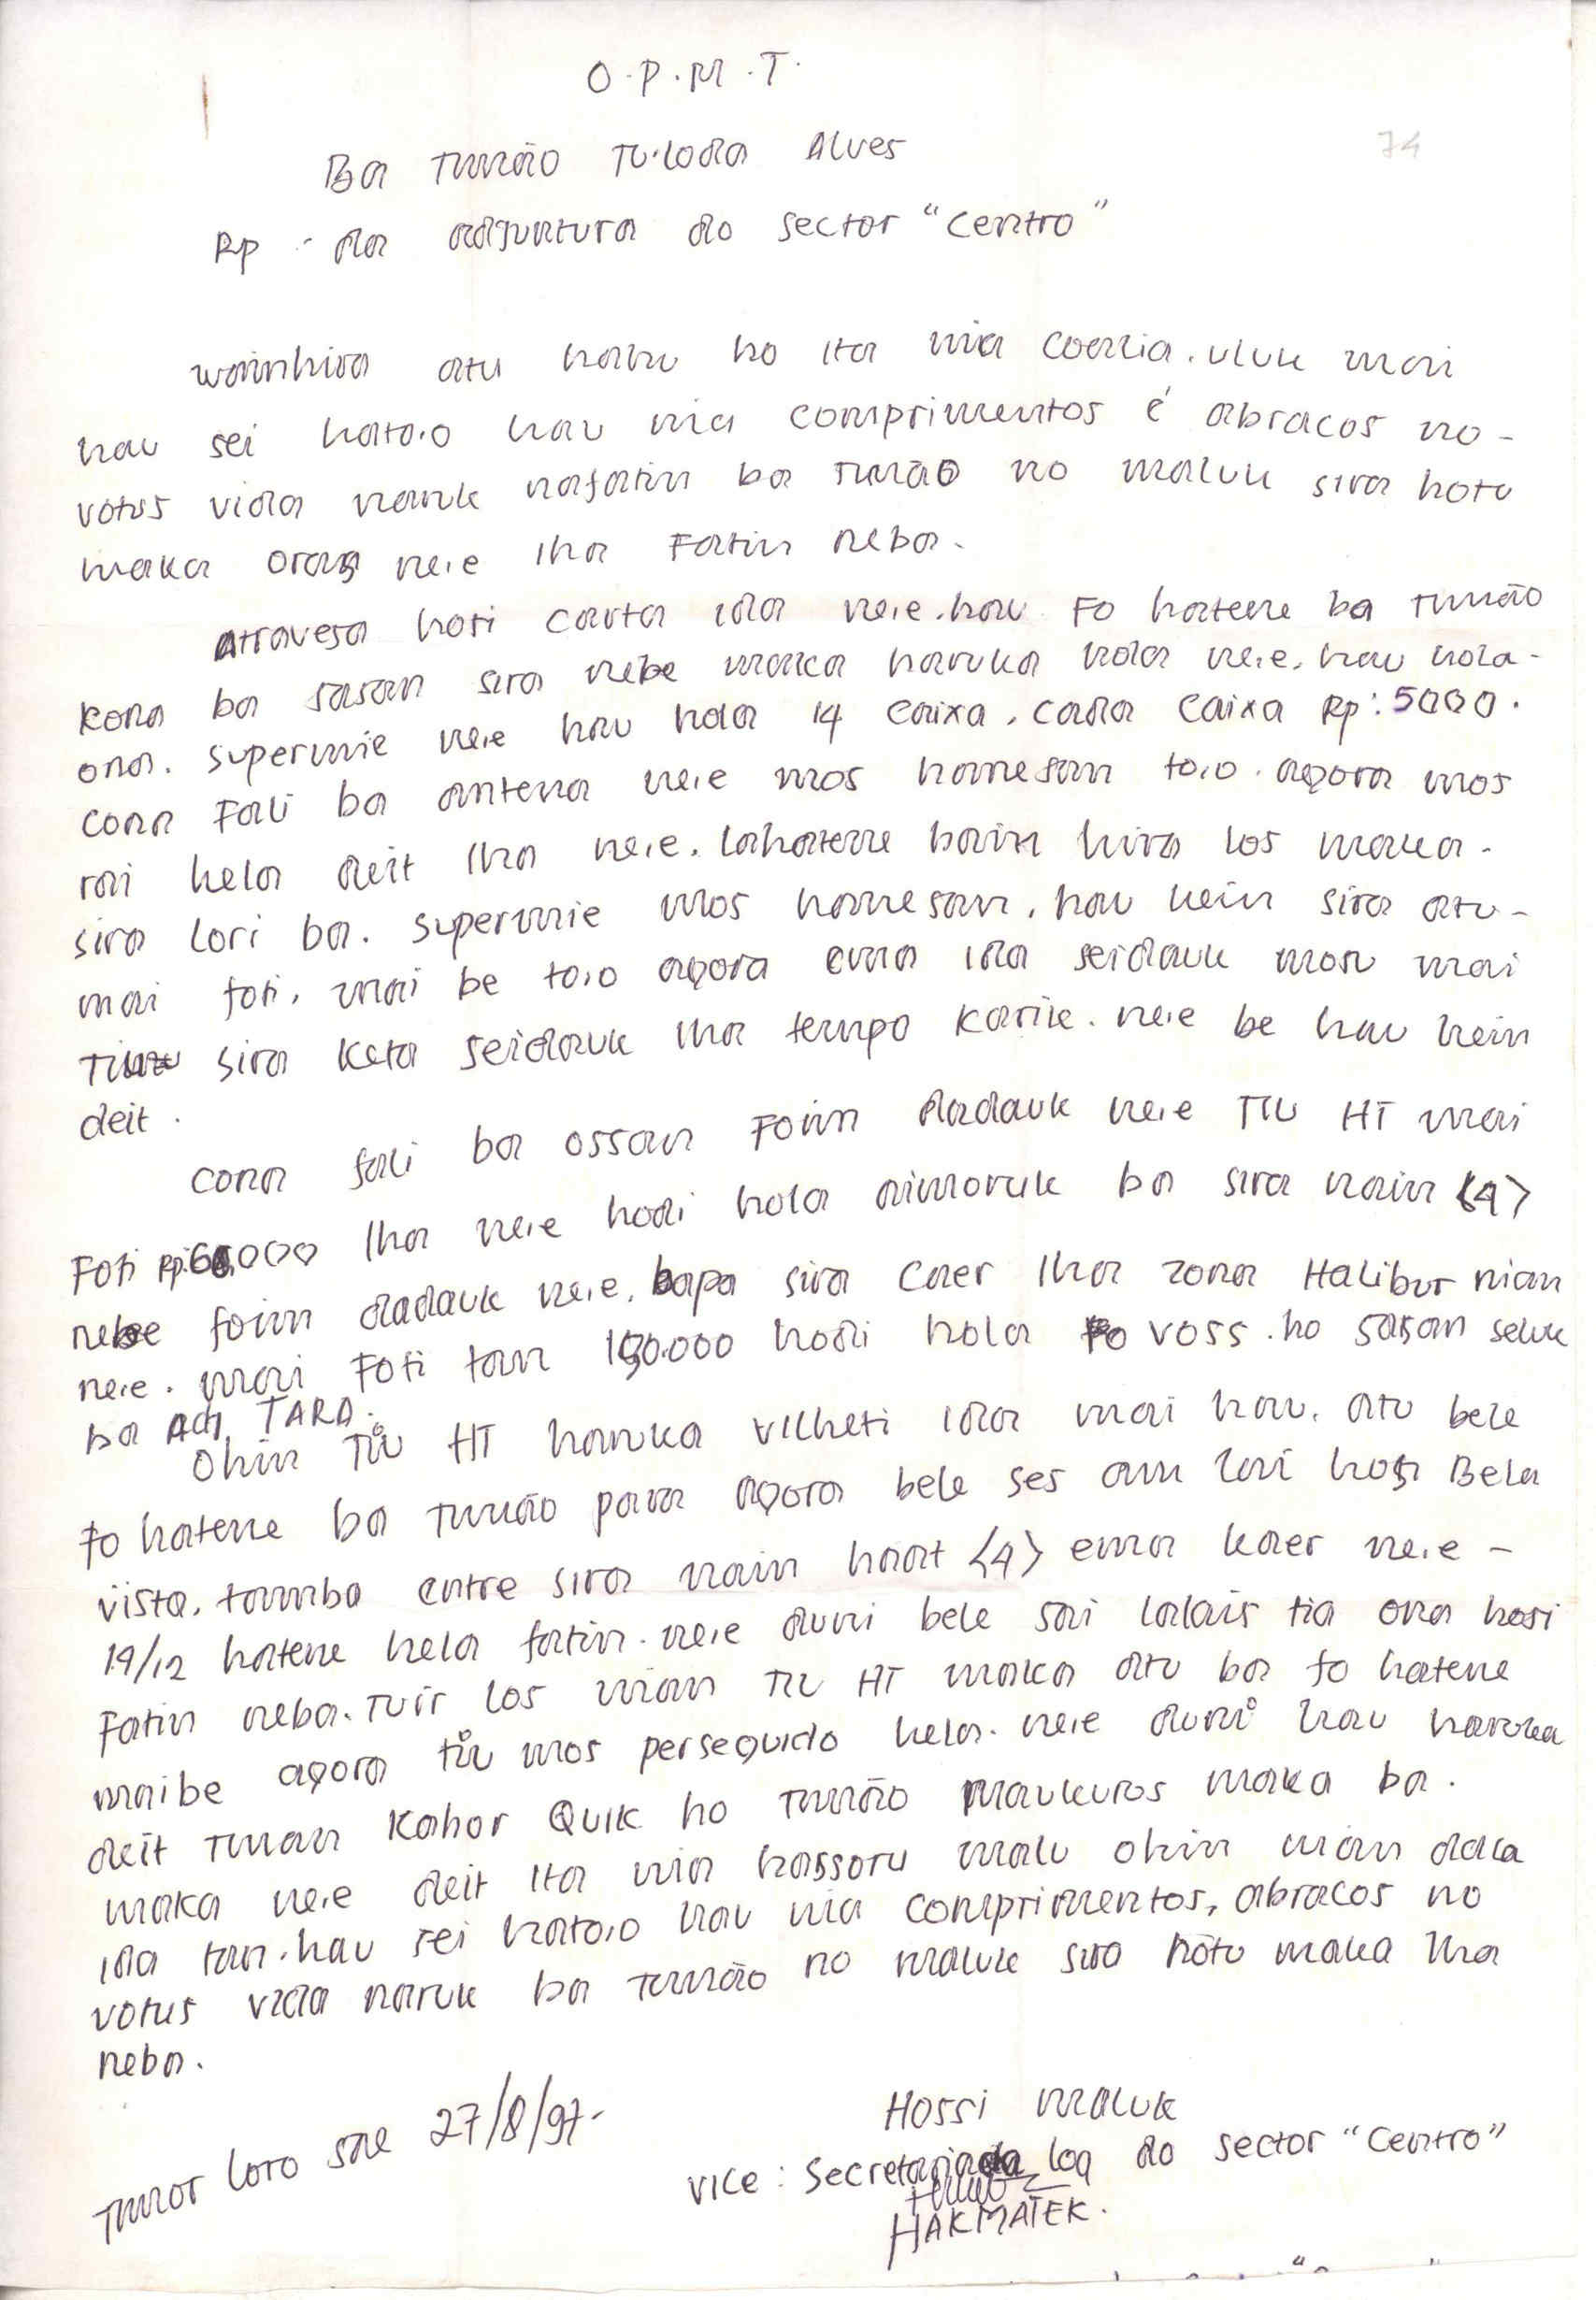 O.P.M.T.
74
Ba Tmuão Tu.loda Alves
Rp - da adjuntura do sector "Centro"
wainhira atu hahu ho ita nia coalia. uluk mai
hau sei hato.o hau nia comprimentos é abracos no-
votus vida naruk nafatin ba Tmuão no maluk sira hotu
maka oras ne.e iha Fatin neba.
Atravesa hosi carta ida ne.e. hau Fo hatene ba Tmuão
kona ba sasan sira nebe maka haruka hola ne.e, hau hola-
ona. supermie ne.e hau hola 14 caixa, cada caixa Rp: 5000.
cona Fali ba antena ne.e mos hanesan to.o agora mos
rai hela deit iha ne.e. lahatene bain hira los maka-
sira lori ba. supermie mos hanesan, hau hein sira atu-
mai foti, mai be to.o agora ema ida seidauk mosu mai
sira keta seidauk iha tempo karik. ne.e be hau hein
deit.
cona fali ba ossan Foin dadauk ne.e TIU HT mai
Foti Rp: 000 iha ne.e hodi hola aimoruk ba sira nain <4>
nebe foin dadauk ne.e, bapa sira caer iha zona Halibur nian
ne.e. mai Foti tan hodi hola voss. ho sasan seluk
ba Adj. TARA.
Ohin TIU HT haruka vilheti ida mai hau. atu bele
fo hatene ba Tmuão para agora bele ses an lai hosi Bela
vista. tamba entre sira nain haat <4> ema kaer ne.e -
19/12 hatene hela fatin. ne.e duni bele sai lalais tia ona hosi
Fatin neba. Tuir los nian TIU HT maka atu ba fo hatene
maibe agora tiu mos perseguido hela. ne.e duni hau haruka
deit Tmuan Kahor Quik ho Tmuão Maukuros maka ba.
maka ne.e deit ita nia hassoru malu ohin nian dala
ida tan. hau sei hato.o hau nia comprimentos, abracos no
votus vida naruk ba Tmuão no maluk sira hotu maka iha
neba.
Timor loro sae 27/8/97-
Hossi maluk
vice: Secretaria da log do sector "Centro"
HAKMATEK.